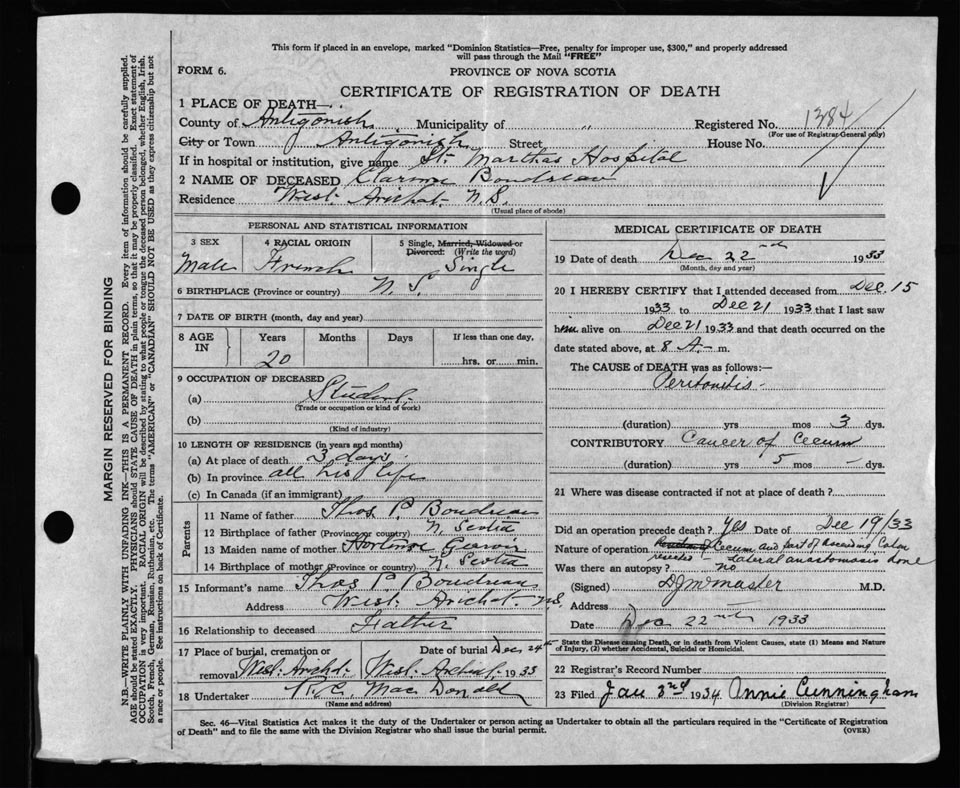 This form if placed in an envelope, marked "Dominion Statistics—Free, penalty for improper use, $300," and properly addressed
will pass through the Mail "FREE"
FORM 6.
PROVINCE OF NOVA SCOTIA
CERTIFICATE OF REGISTRATION OF DEATH
1 PLACE OF DEATH—
County of Antigonish Municipality of " Registered No. 1384
(For use of Registrar General only)
City or Town Antigonish Street House No.
If in hospital or institution, give name St. Marthas Hospital
2 NAME OF DECEASED Boudreau
Residence West Arichat N.S.
(Usual place of abode)
PERSONAL AND STATISTICAL INFORMATION
3 SEX 4 RACIAL ORIGIN 5 Single, Married, Widowed or
Divorced: (Write the word)
Male French Single
6 BIRTHPLACE (Province or country) N.S.
7 DATE OF BIRTH (month, day and year)
8 AGE IN Years Months Days If less than one day,
20 hrs. or min.
9 OCCUPATION OF DECEASED
(a) Student
(Trade or occupation or kind of work)
(b)
(Kind of industry)
10 LENGTH OF RESIDENCE (in years and months)
(a) At place of death 3 days
(b) In province all his life
(c) In Canada (if an immigrant)
Parents
11 Name of father Thos P. Boudreau
12 Birthplace of father (Province or country) N. Scotia
13 Maiden name of mother Hortense
14 Birthplace of mother (Province or country) N. Scotia
15 Informant's name Thos P. Boudreau
Address West Arichat N.S.
16 Relationship to deceased Father
17 Place of burial, cremation or Date of burial Dec 24
removal West Arichat West Arichat 1933
18 Undertaker MacDonald
(Name and address)
MEDICAL CERTIFICATE OF DEATH
19 Date of death Dec 22nd 1933
(Month, day and year)
20 I HEREBY CERTIFY that I attended deceased from Dec. 15
1933 to Dec 21 1933 that I last saw
him alive on Dec 21 1933 and that death occurred on
date stated above, at 8 A. m.
The CAUSE of DEATH was as follows:—
Peritonitis
(duration) yrs mos 3 dys.
CONTRIBUTORY Cancer of Cecum
(duration) yrs 5 mos – dys.
21 Where was disease contracted if not at place of death?
Did an operation precede death? Yes Date of Dec 19/33
Nature of operation Cecum and part of ascending Colon
resected – Lateral anastomosis done
Was there an autopsy? No
(Signed) M.D.
Address
Date Dec 22nd 1933
State the Disease causing Death, or in death from Violent Causes, state (1) Means and Nature
of Injury, (2) whether Accidental, Suicidal or Homicidal.
22 Registrar's Record Number
23 Filed Jan 1934 Annie Cunningham
(Division Registrar)
Sec. 46—Vital Statistics Act makes it the duty of the Undertaker or person acting as Undertaker to obtain all the particulars required in the "Certificate of Registration
of Death" and to file the same with the Division Registrar who shall issue the burial permit.
(OVER)
MARGIN RESERVED FOR BINDING
N.B.—WRITE PLAINLY WITH UNFADING INK—THIS IS A PERMANENT RECORD. Every item of information should be carefully supplied.
AGE should be stated EXACTLY. PHYSICIANS should STATE CAUSE OF DEATH in plain terms, so that it may be properly classified. Exact statement of
OCCUPATION is very important. RACIAL ORIGIN will be described by stating to what people or tongue the deceased person belonged, whether English, Irish,
Scotch, French, German, Russian, Ruthenian, etc. The terms "AMERICAN" or "CANADIAN" SHOULD NOT BE USED as they express citizenship but not
a race or people. See instructions on back of Certificate.